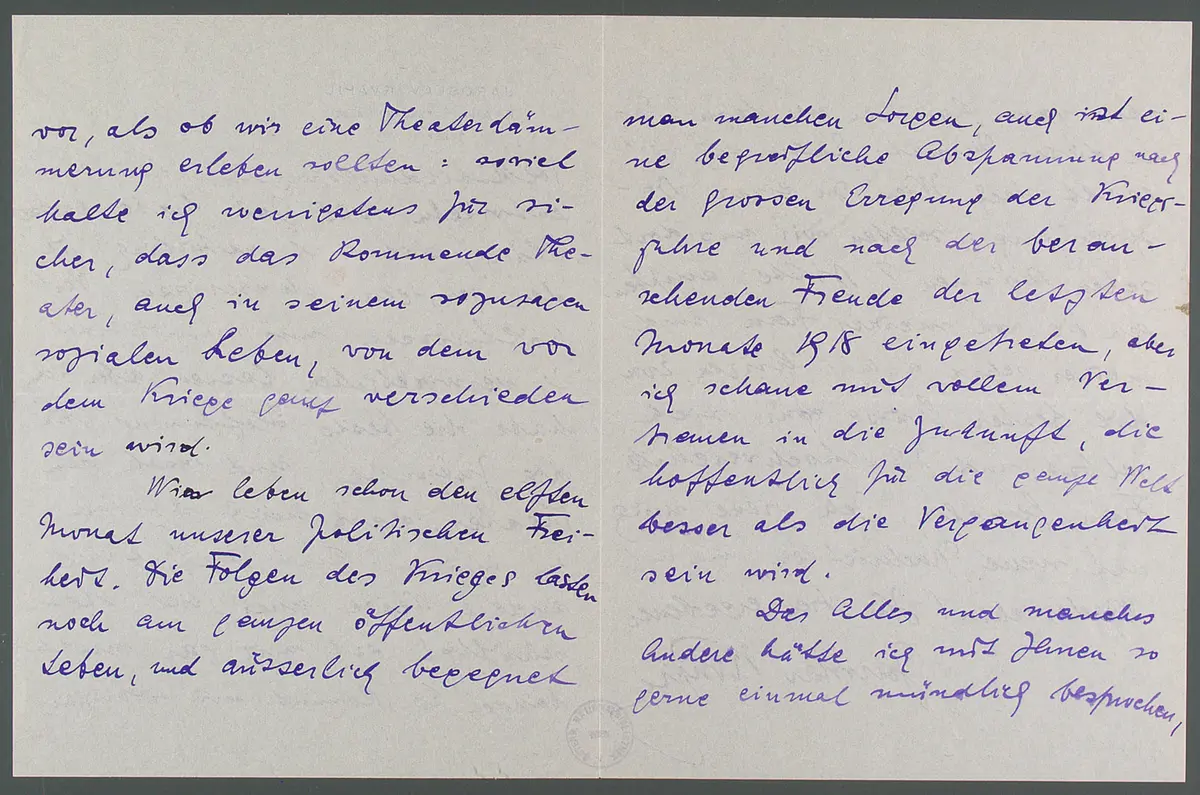 vor, als ob wir eine Theaterdäm-
merung erleben sollten: soviel
halte ich wenigstens für si-
cher, dass das kommende The-
ater, auch in seinem sozusagen
sozialen Leben, von dem vor
dem Kriege ganz verschieden
sein wird.
Wir leben schon den elften
Monat unserer politischen Frei-
heit. Die Folgen des Krieges lasten
noch am ganzen öffentlichen
Leben, und äusserlich begegnet
man manchen Sorgen, auch ist ei-
ne begreifliche Abspannung nach
der grossen Erregung der Kriegs-
jahre und nach der berau-
schenden Freude der letzten
Monate 1918 eingetreten, aber
ich schaue mit vollem Ver-
trauen in die Zukunft, die
hoffentlich für die ganze Welt
besser als die Vergangenheit
sein wird.
Das Alles und manches
Andere hätte ich mit Ihnen so
gerne einmal mündlich besprochen,